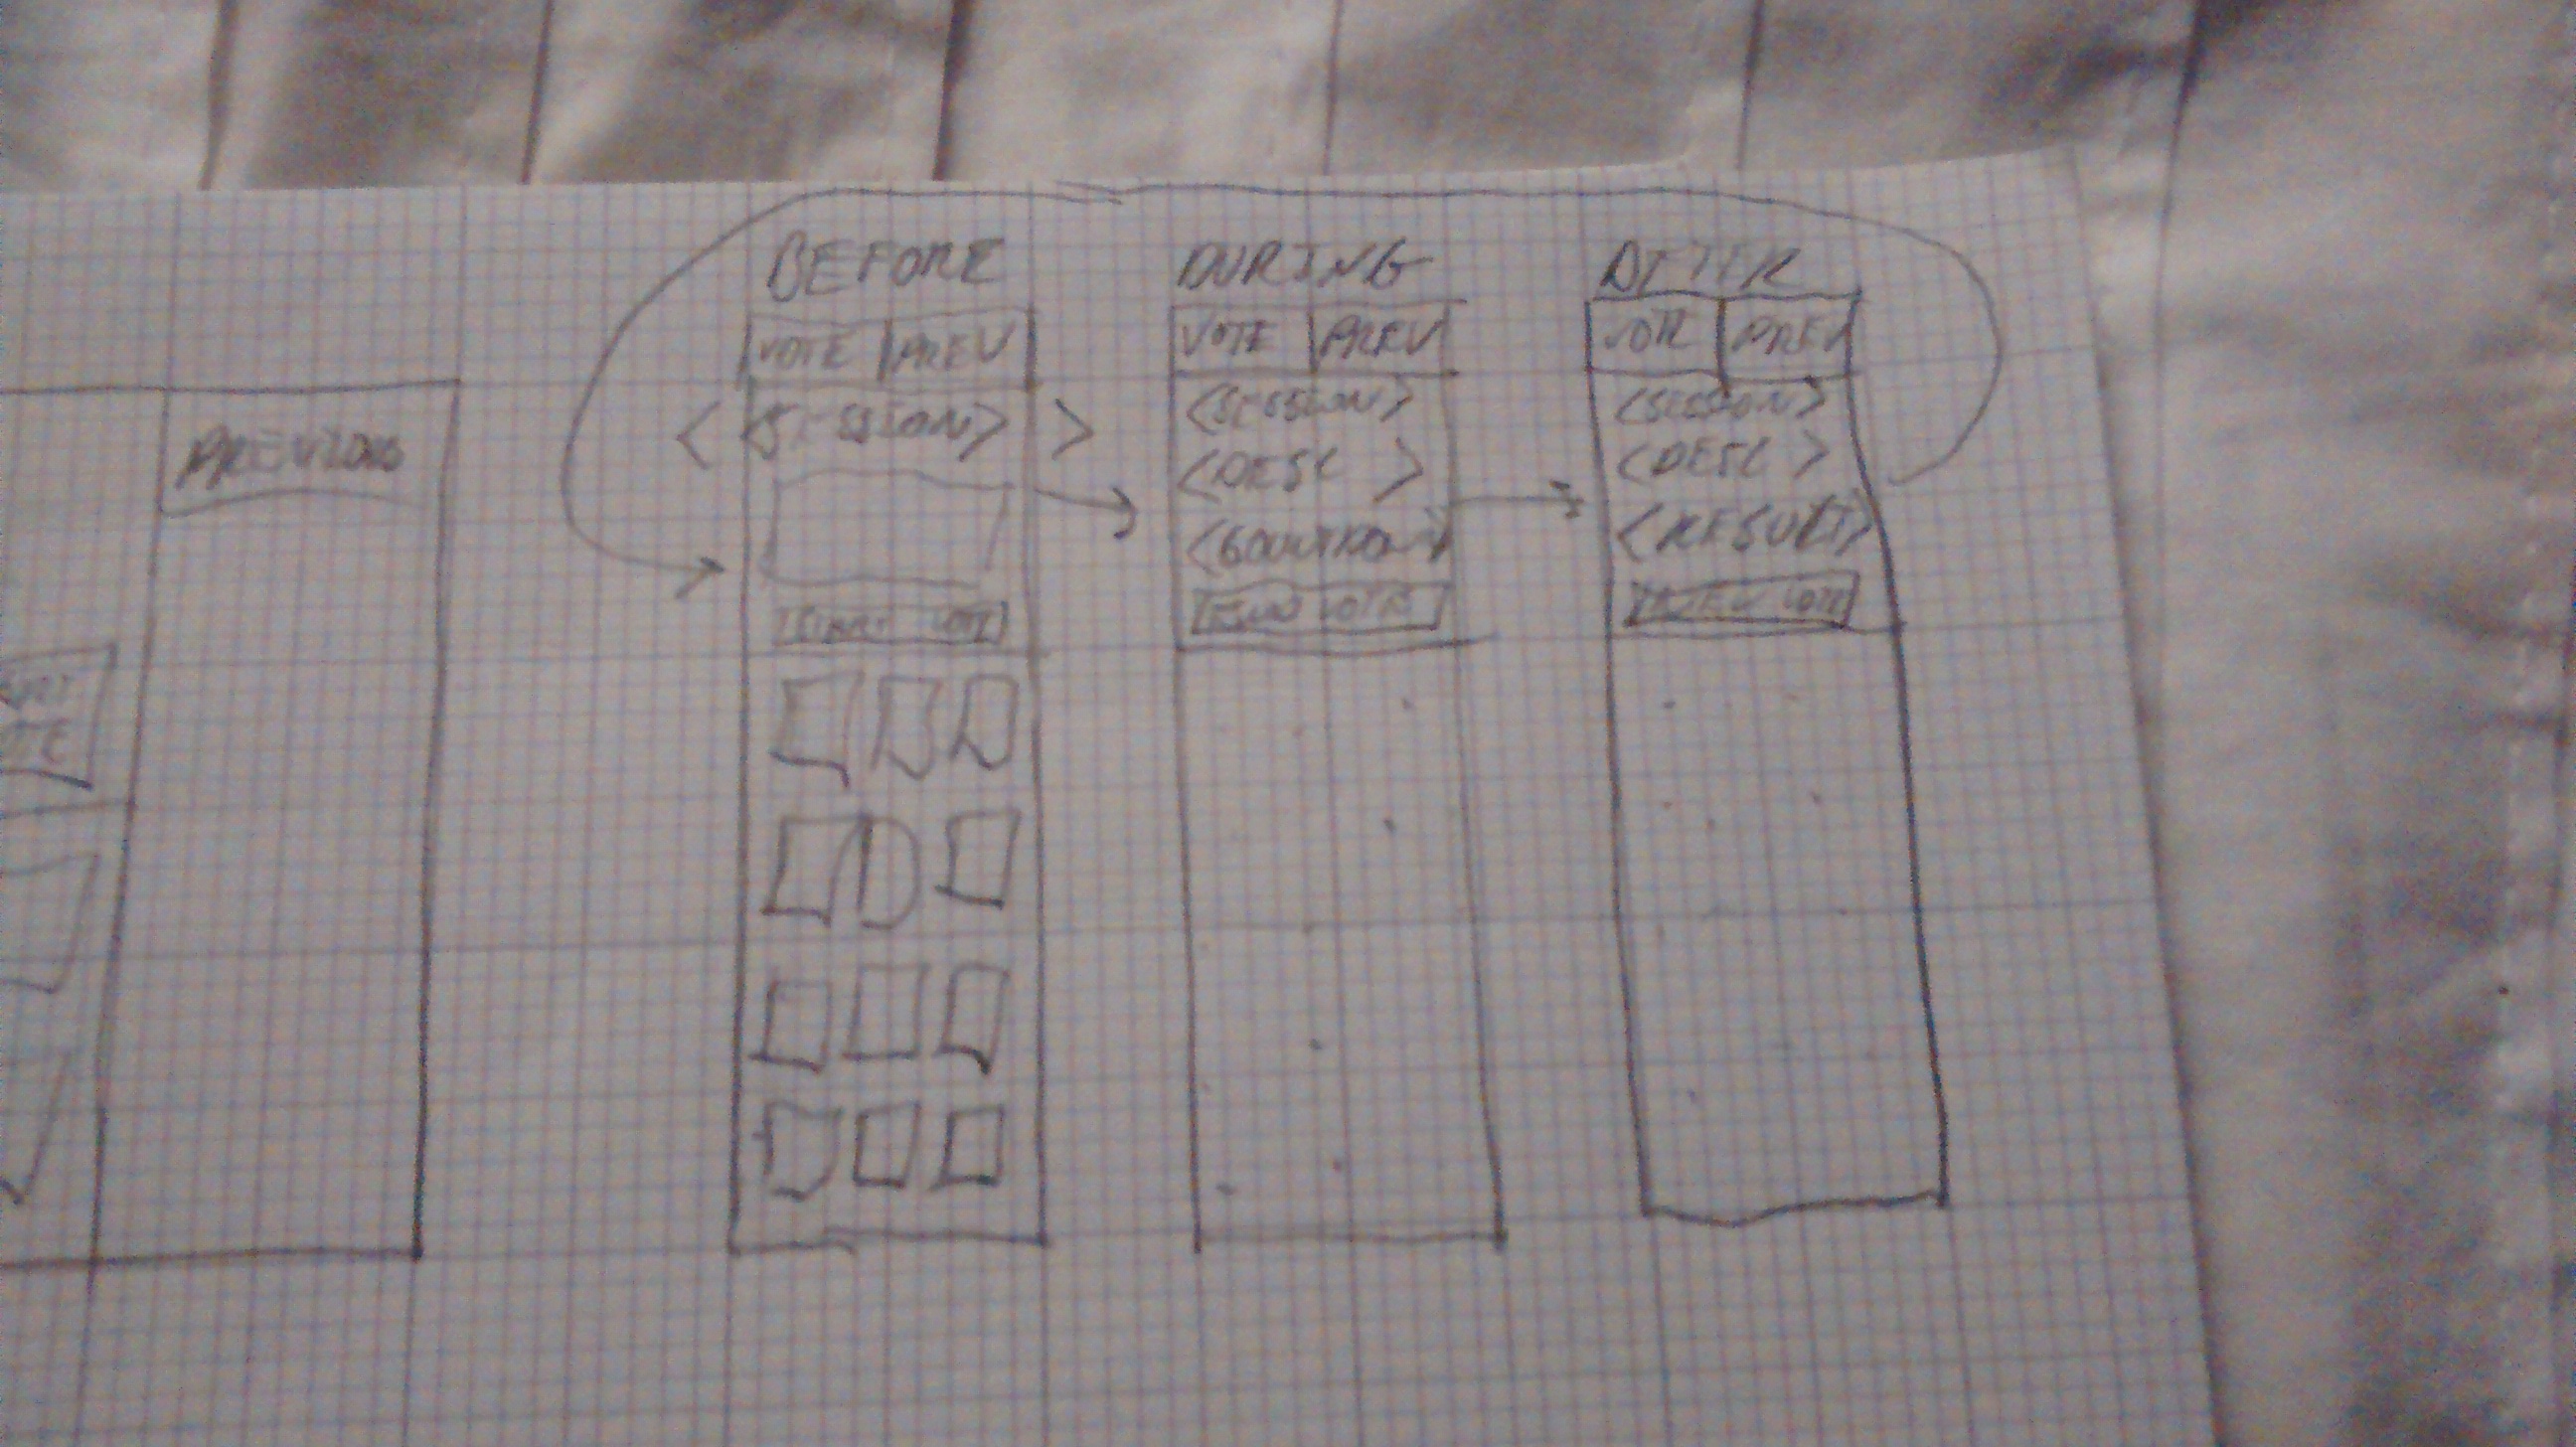 BEFORE
VOTE PREV
< <SESSION> >
START VOTE
DURING
VOTE PREV
<SESSION>
<DESC >
<COUNTDOWN>
END VOTE
AFTER
VOTE PREV
<SESSION>
<DESC >
<RESULT>
NEW VOTE
PREVIOUS